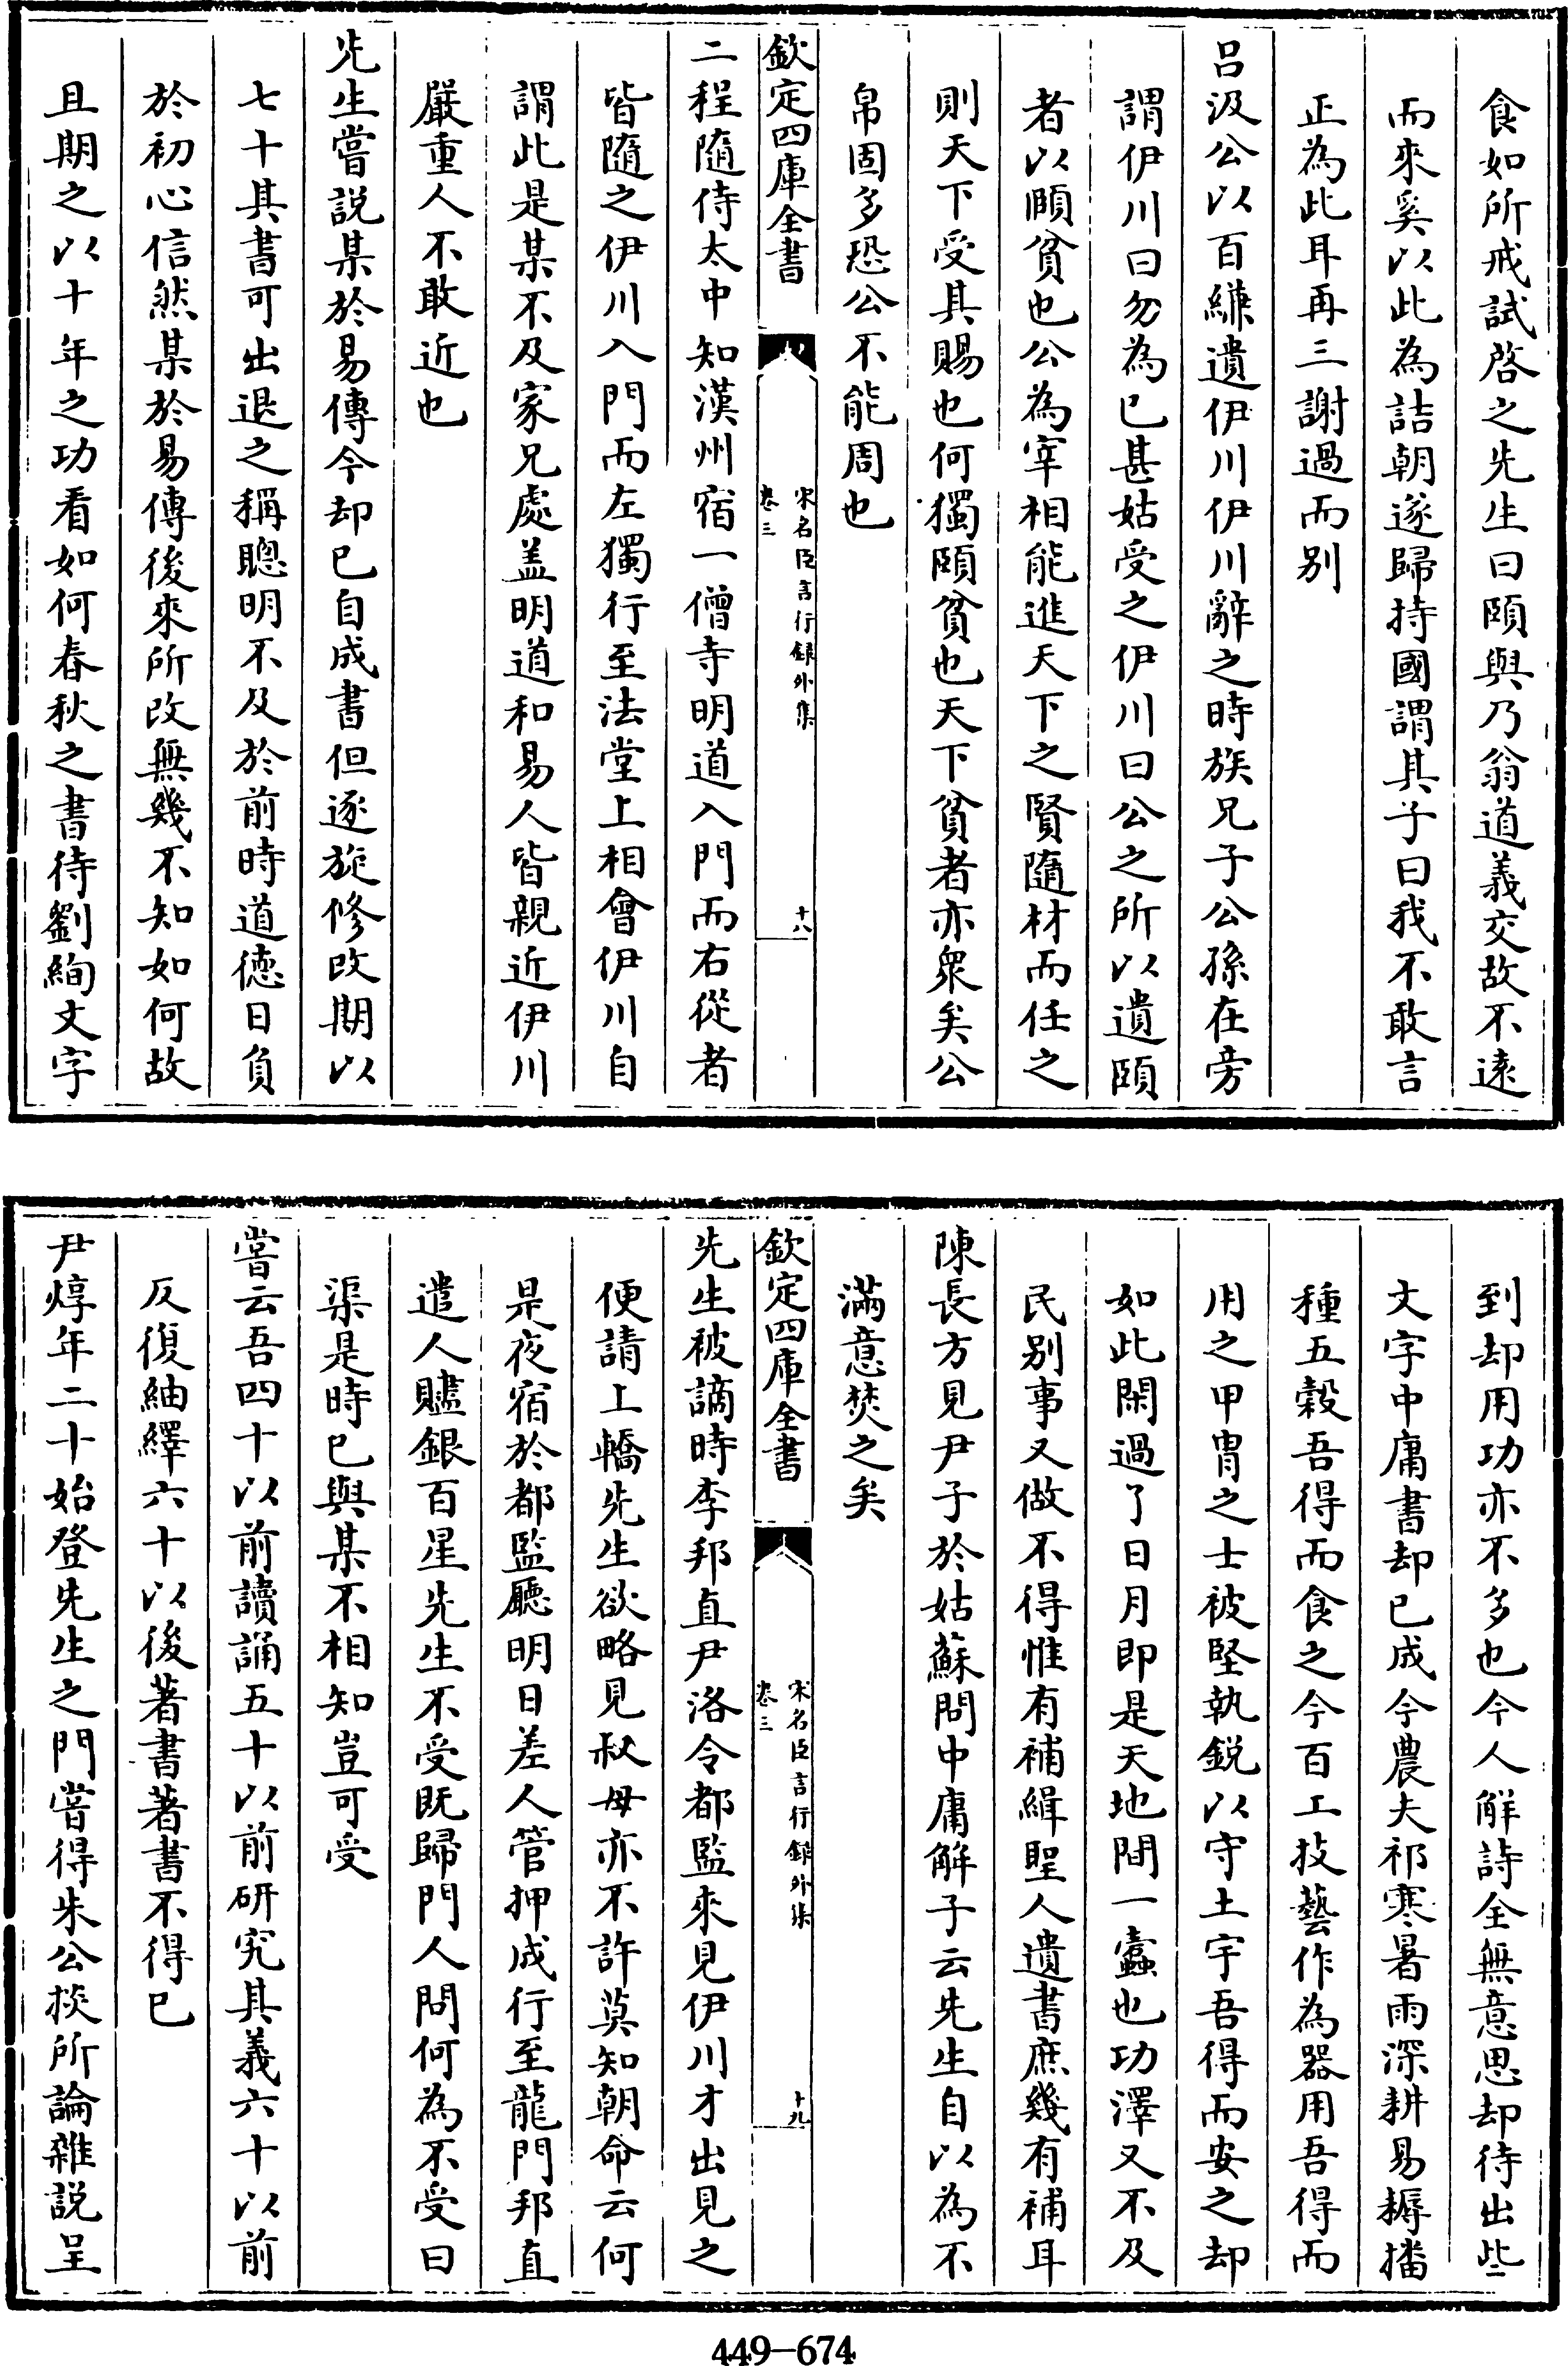 食如所戒試啓之先生曰頤與乃翁道義交故不遠
而來奚以此為詰朝遂歸持國謂其子曰我不敢言
正為此耳再三謝過而别
吕汲公以百縑遺伊川伊川辭之時族兄子公孫在旁
謂伊川曰勿為已甚姑受之伊川曰公之所以遺頤
者以頤貧也公為宰相能進天下之賢隨材而任之
則天下受其賜也何獨頤貧也天下貧者亦衆矣公
帛固多恐公不能周也
欽定四庫全書
宋名臣言行録外集
卷三
十八
二程隨侍太中知漢州宿一僧寺明道入門而右從者
皆隨之伊川入門而左獨行至法堂上相會伊川自
謂此是某不及家兄處盖明道和易人皆親近伊川
嚴重人不敢近也
先生嘗説某於易傳今却已自成書但逐旋修改期以
七十其書可出退之稱聰明不及於前時道德日負
於初心信然某於易傳後來所改無幾不知如何故
且期之以十年之功看如何春秋之書待劉絢文字
到却用功亦不多也今人解詩全無意思却待出些
文字中庸書却已成今農夫祁寒暑雨深耕易耨播
種五榖吾得而食之今百工技藝作為器用吾得而
用之甲胄之士被堅執鋭以守土宇吾得而安之却
如此閑過了日月即是天地間一蠧也功澤又不及
民别事又做不得惟有補緝聖人遺書庶幾有補耳
陳長方見尹子於姑蘇問中庸解子云先生自以為不
滿意焚之矣
欽定四庫全書
宋名臣言行録外集
卷三
十九
先生被謫時李邦直尹洛令都監來見伊川才出見之
便請上轎先生欲略見叔母亦不許莫知朝命云何
是夜宿於都監廳明日差人管押成行至龍門邦直
遣人贐銀百星先生不受既歸門人問何為不受曰
渠是時已與某不相知豈可受
嘗云吾四十以前讀誦五十以前研究其義六十以前
反復紬繹六十以後著書著書不得已
尹焞年二十始登先生之門嘗得朱公掞所論雜説呈
449-674